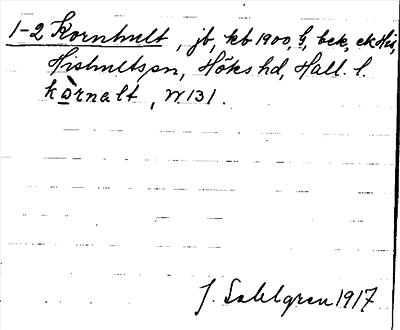 1-2 Kornhult, jb, kb 1900, G, bek, ek His,
Hishults sn, Höks hd, Hall. l.
kòrnalt, W 131.
J. Sahlgren 1917